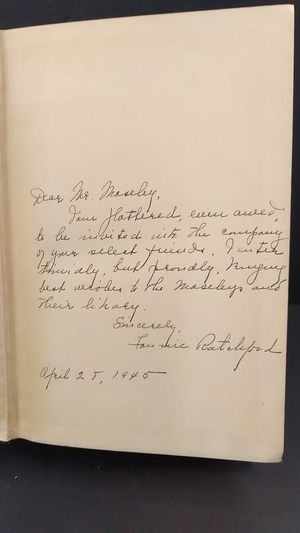 Dear Mr. Moseley,
I am flattered, even awed,
to be invited into the company
of your select friends. I enter
timidly, but proudly, bringing
best wishes to the Moseleys and
their library.
Sincerely,
Fannie Ratchford
April 25, 1945